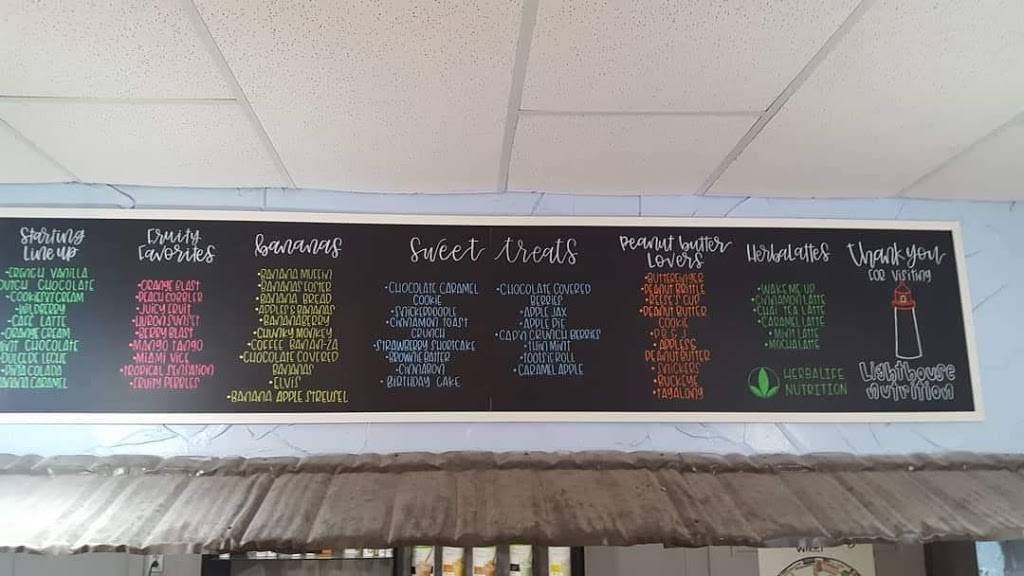 Starting
Line up
FRENCH VANILLA
DUTCH CHOCOLATE
•COOKIES N CREAM
•WILDBERRY
•CAFE LATTE
ORANGE CREAM
MINT CHOCOLATE
•DULCE DE LECHE
•PINA COLADA
BANANA CARAMEL
Fruity
Favorites
•ORANGE BLAST
•PEACH COBBLER
•JUICY FRUIT
•BERRY BLAST
•MANGO TANGO
•MIAMI VICE
•TROPICAL SENSATION
•FRUITY PEBBLES
Bananas
•BANANA MUFFIN
•BANANAS FOSTER
•BANANA BREAD
•APPLES & BANANAS
•BANANABERRY
•CHUNKY MONKEY
•COFFEE BANAN-ZA
•CHOCOLATE COVERED
BANANAS
•ELVIS
•BANANA APPLE STREUSEL
Sweet treats
•CHOCOLATE CARAMEL
COOKIE
•SNICKERDOODLE
•CINNAMON TOAST
CRUNCH
•STRAWBERRY SHORTCAKE
•BROWNIE BATTER
•CINNABON
•BIRTHDAY CAKE
•CHOCOLATE COVERED
BERRIES
•APPLE JAX
•APPLE PIE
•CAP'N CRUNCH BERRIES
•THIN MINT
•TOOTSIE ROLL
•CARAMEL APPLE
Peanut butter
Lovers
•BUTTERFINGER
•PEANUT BRITTLE
•REESE'S CUP
•PEANUT BUTTER
COOKIE
•P.B. & J.
•APPLES
PEANUT BUTTER
•SNICKERS
•BUCKEYE
•TAGALONG
Herbalattes
•WAKE ME UP
•CINNAMON LATTE
•CHAI TEA LATTE
•CARAMEL LATTE
•MOCHALATTE
HERBALIFE
NUTRITION
Thank you
FOR VISITING
Lighthouse
nutrition